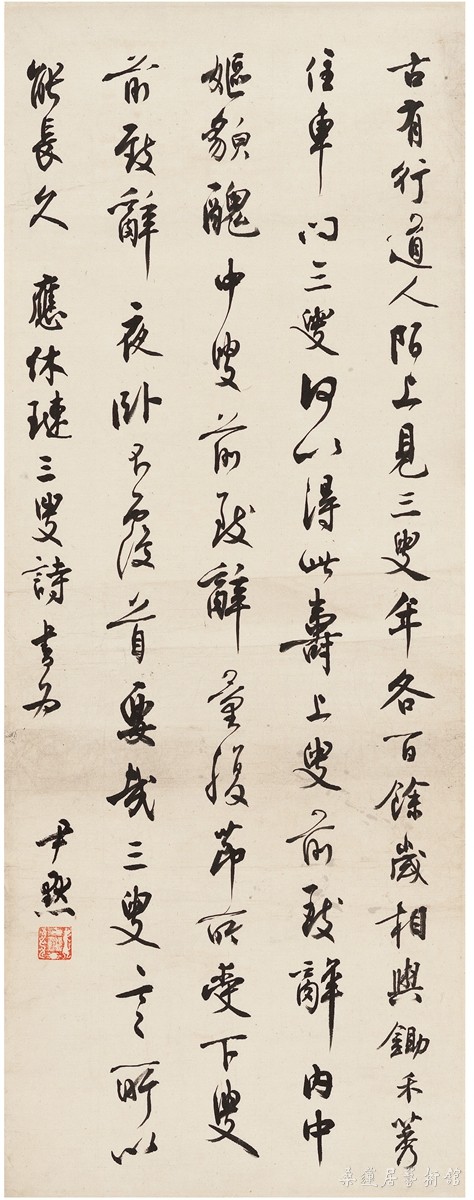 古有行道人陌上見三叟年各百餘歲相與鋤禾莠
住車問三叟何以得此壽上叟前致辭內中
嫗貌醜中叟前致辭量腹節所受下叟
前致辭夜臥不覆首要哉三叟言所以
能長久 應休璉三叟詩 書為
尹默
桑蓮居藝術館